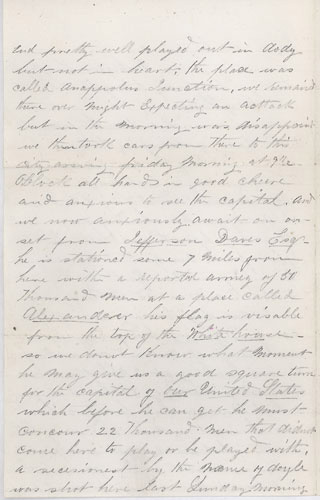 and pretty well played out in body
but not in heart; the place was
called Anappolus Junction, we remained
there over night Expecting an acttack
but in the morning was disappoint
we then took cars from there to this
city arriving friday Morning at
Oclock all hands in good cheere
and anxious to see the capital. and
we now anxiously await an on-
set from Jefferson Davis Esq
he is stationed some 7 miles from
here with a reported armey of 30
thousand men at a place called
Alexanderer his flag is visable
from the top of the White house -
so we donot know what moment
he may give us a good square turn
for the capital of our United States
which before he can get he must
concour 22 Thousand men that didnot
come here to play or be played with,
a secessionest by the name of doyle
was shot here last Sunday Morning